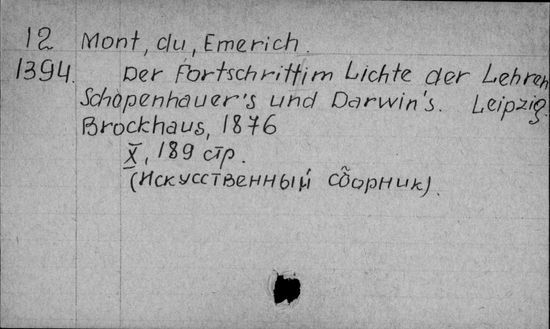 12 Mont, du, Emerich.
1394. Der Fortschritt im Lichte der Lehren
Schopenhauer's und Darwin's. Leipzig.
Brockhaus, 1876
X, 189 стр.
(Искусственный сборник).